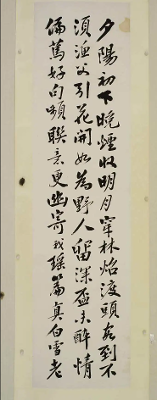 夕陽初下晚煙收明月穿林炤渡頭客到不
須漁父引花開如為野人留深盃未醉情
偏篤好句頻聯意更幽寄我瑤篇真白雪老